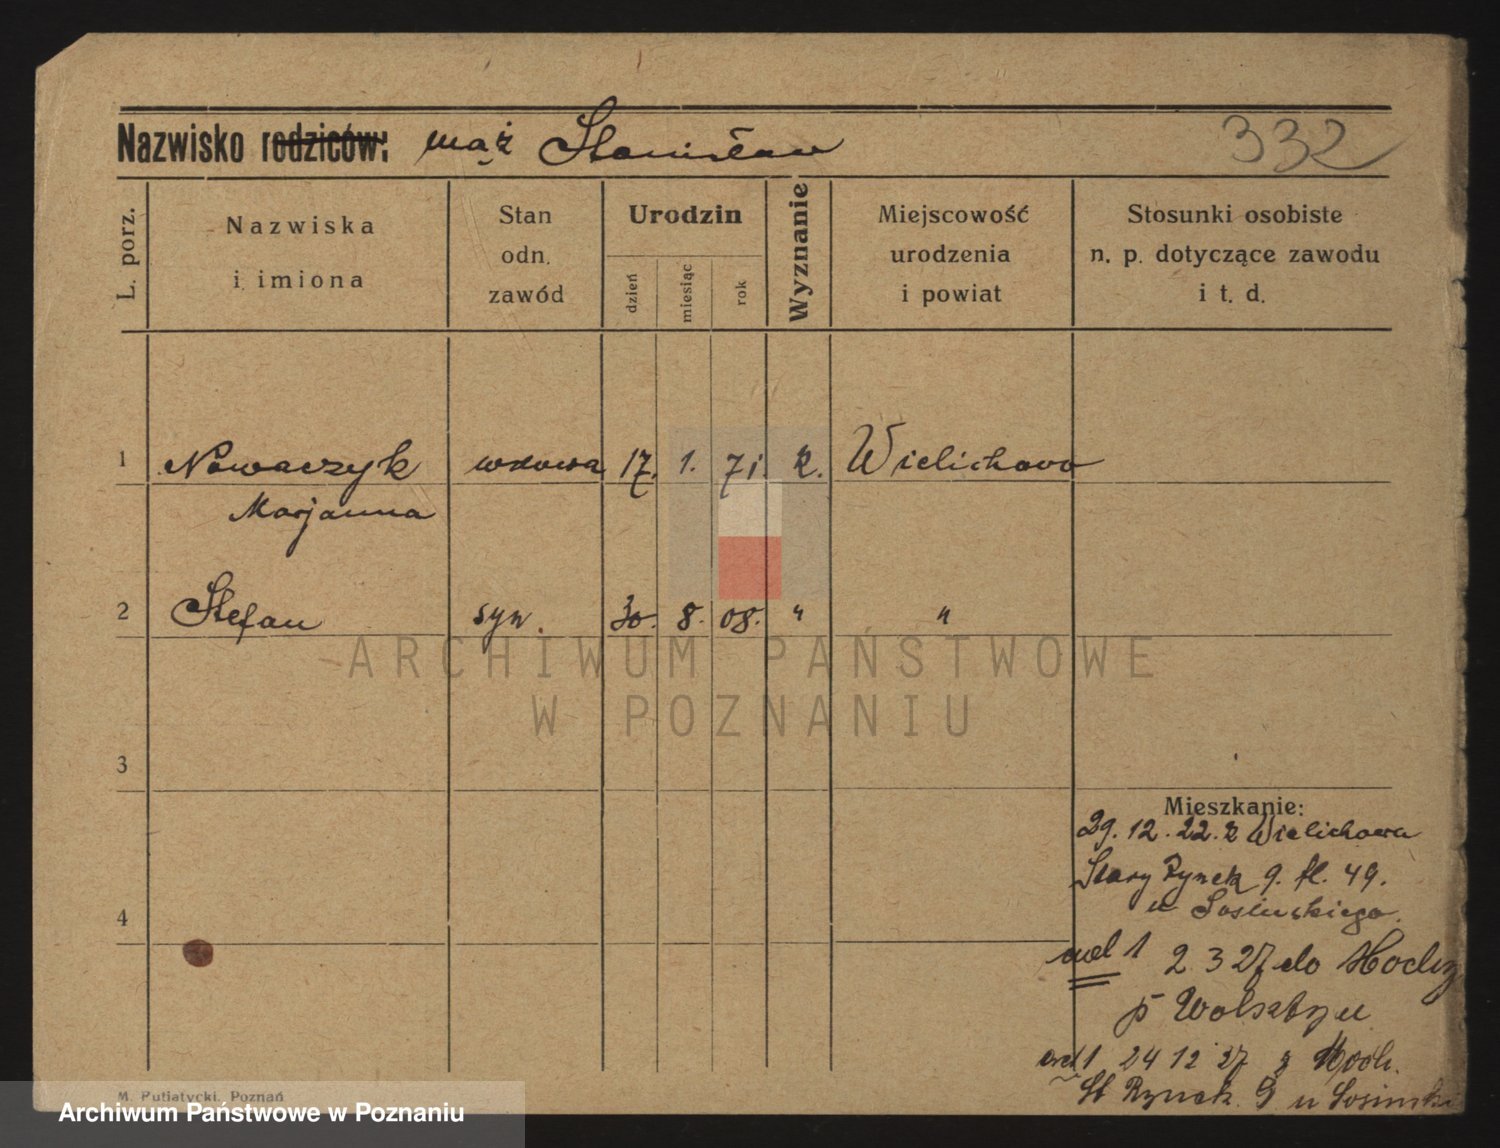 Nazwisko rodziców: mąż Stanisław 332
L. porz.
Nazwiska
i imiona
Stan
odn.
zawód
Urodzin
dzień
miesiąc
rok
Wyznanie
Miejscowość
urodzenia
i powiat
Stosunki osobiste
n. p. dotyczące zawodu
i t. d.
1 Nowaczyk wdowa 17. 1. 71. k. Wielichowo
Marjanna
2 Stefan syn. 30. 8. 08. " "
ARCHIWUM PAŃSTWOWE
W POZNANIU
3
Mieszkanie:
29. 12. 22. z Wielichowa
Stary Rynek 9. fl. 49.
u Sosińskiego.
4
ad 1 2 3 27 do
p Wolsztyn
ad 1 24 12 27 z
St Rynek 9 u Sosinski
M. Putiatycki, Poznań
Archiwum Państwowe w Poznaniu